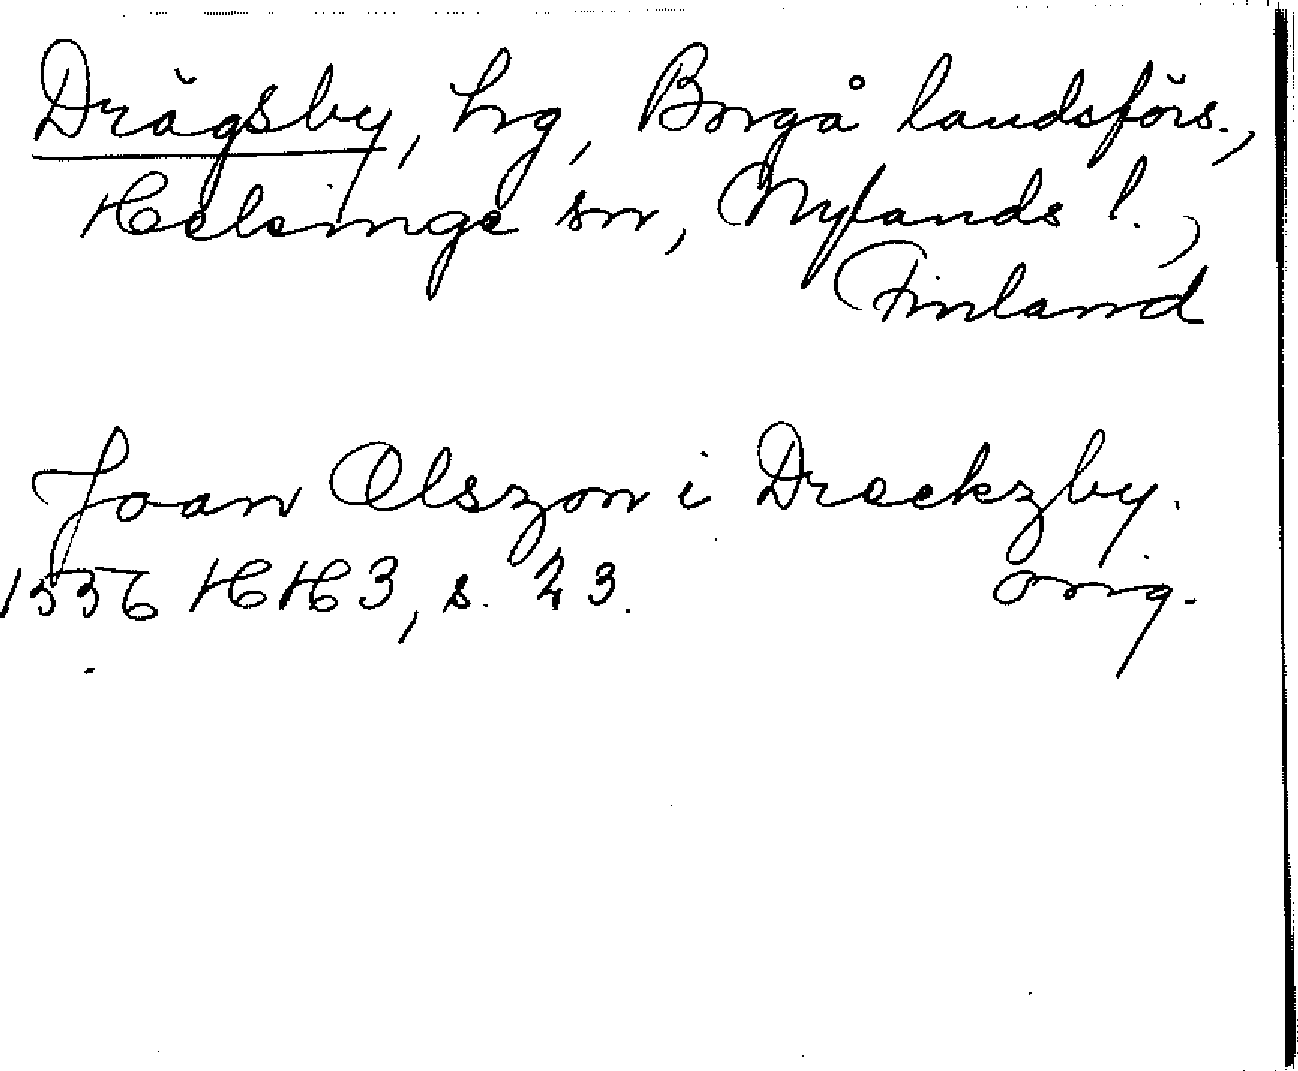 Drägsby, hg, Borgå landsförs.,
Helsinge sn, Nylands l.,
Finland
Joan Olszon i Dreckzby.
1556 HH3, s. 23. orig.